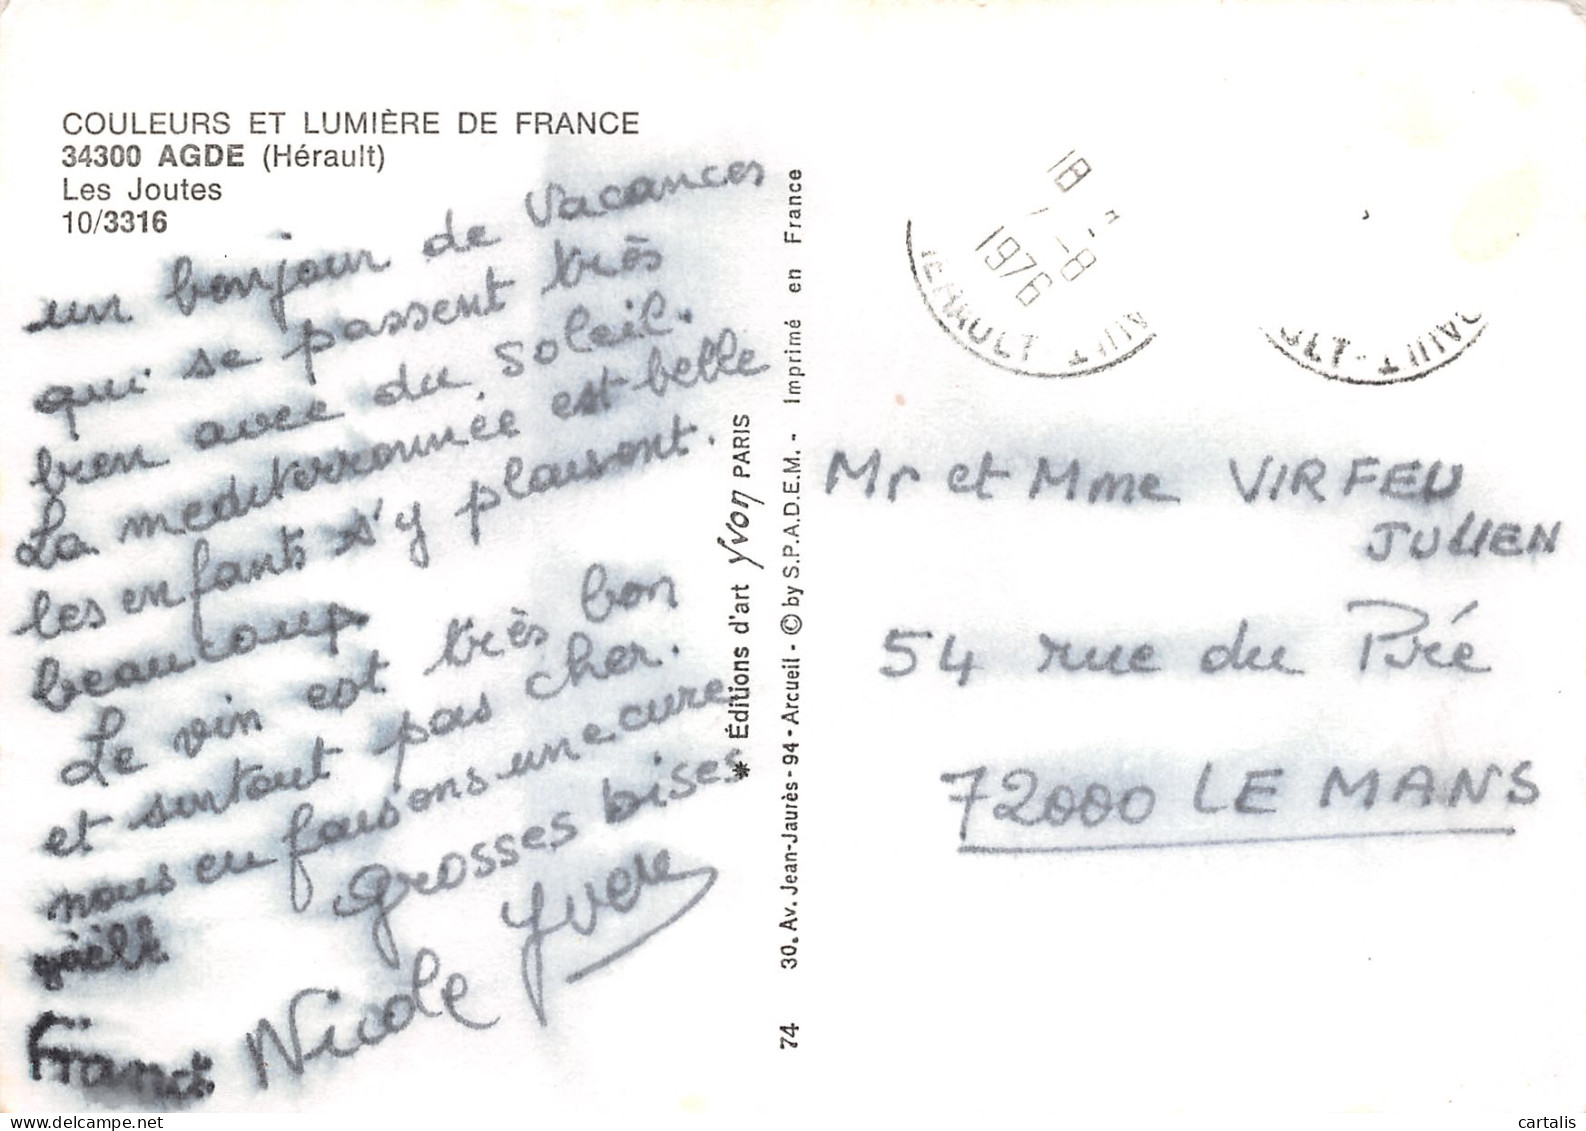 COULEURS ET LUMIÈRE DE FRANCE
34300 AGDE (Hérault)
Les Joutes
10/3316
un bonjour de Vacances
qui se passent très
bien avec du Soleil.
La mediterrannée est belle
les enfants s'y plaisent.
beaucoup
Le vin est très bon
et surtout pas cher.
nous en faisons une cure
Grosses bises
Yvon
Nicole
* Éditions d'art Yvon PARIS
30, Av. Jean-Jaurès - 94 - Arcueil - © by S.P.A.D.E.M. - Imprimé en France
74
18
1 -8
1976
HERAULT
Mr et Mme VIRFEU
JULIEN
54 rue du Pré
72000 LE MANS
cartalis